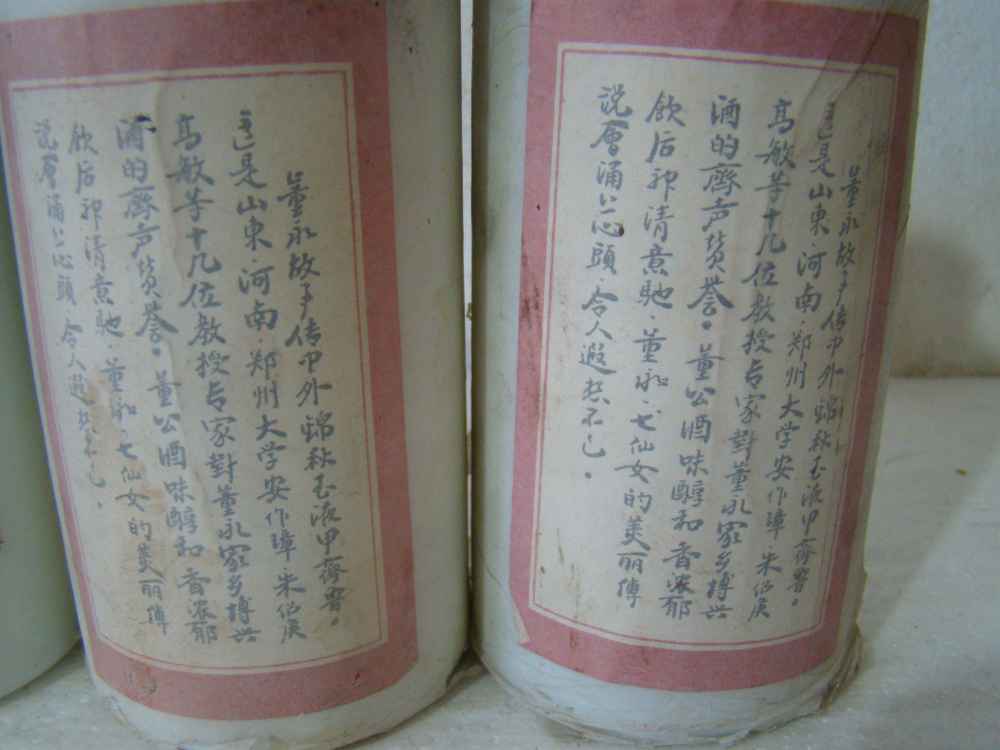 董永故事传中外錦秋玉液甲齊魯。
这是山東·河南·郑州大学安作璋·朱绍侯
高敏等十几位教授专家對董永家乡博兴
酒的齊声贊誉。董公酒味醇和香浓郁
飲后神清意馳·董永·七仙女的美丽傳
说層涌上心頭·令人遐想不已。
董永故事传中外錦秋玉液甲齊魯。
这是山東·河南·郑州大学安作璋·朱绍侯
高敏等十几位教授专家對董永家乡博兴
酒的齊声贊誉。董公酒味醇和香浓郁
飲后神清意馳·董永·七仙女的美丽傳
说層涌上心頭·令人遐想不已。